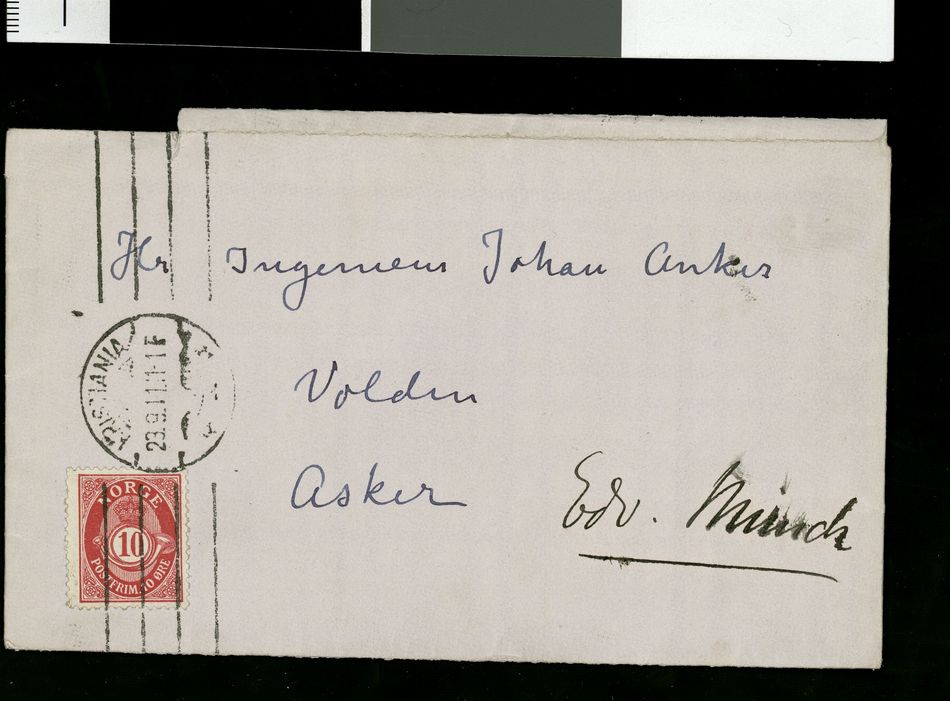 Hr Ingeniør Johan Anker
Volden
Asker
Edv. Munch
KRISTIANIA
23.9.11.1-1 E
NORGE
10
POSTFRIM. 10 ØRE